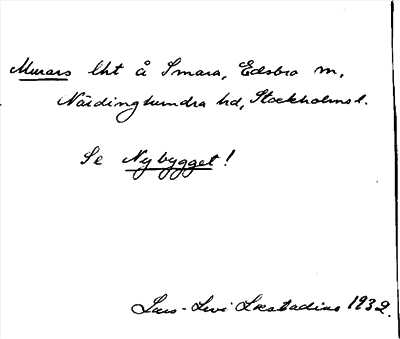 Murars lht å Smara, Edsbro sn,
Närdinghundra hd, Stockholms l.
Se Nybygget!
Lars-Levi Læstadius 1932.